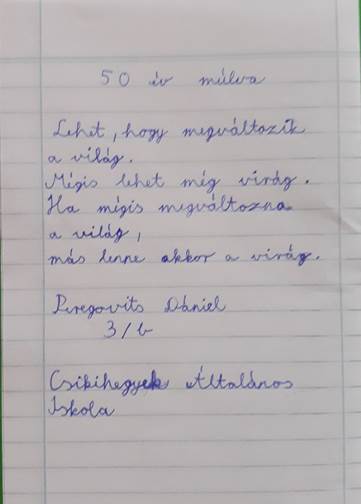 50 év múlva
Lehet, hogy megváltozik
a világ.
Mégis lehet még virág.
Ha mégis megváltozna
a világ,
más lenne akkor a virág.
Peregovits Dániel
3/b
Csikihegyek Általános
Iskola